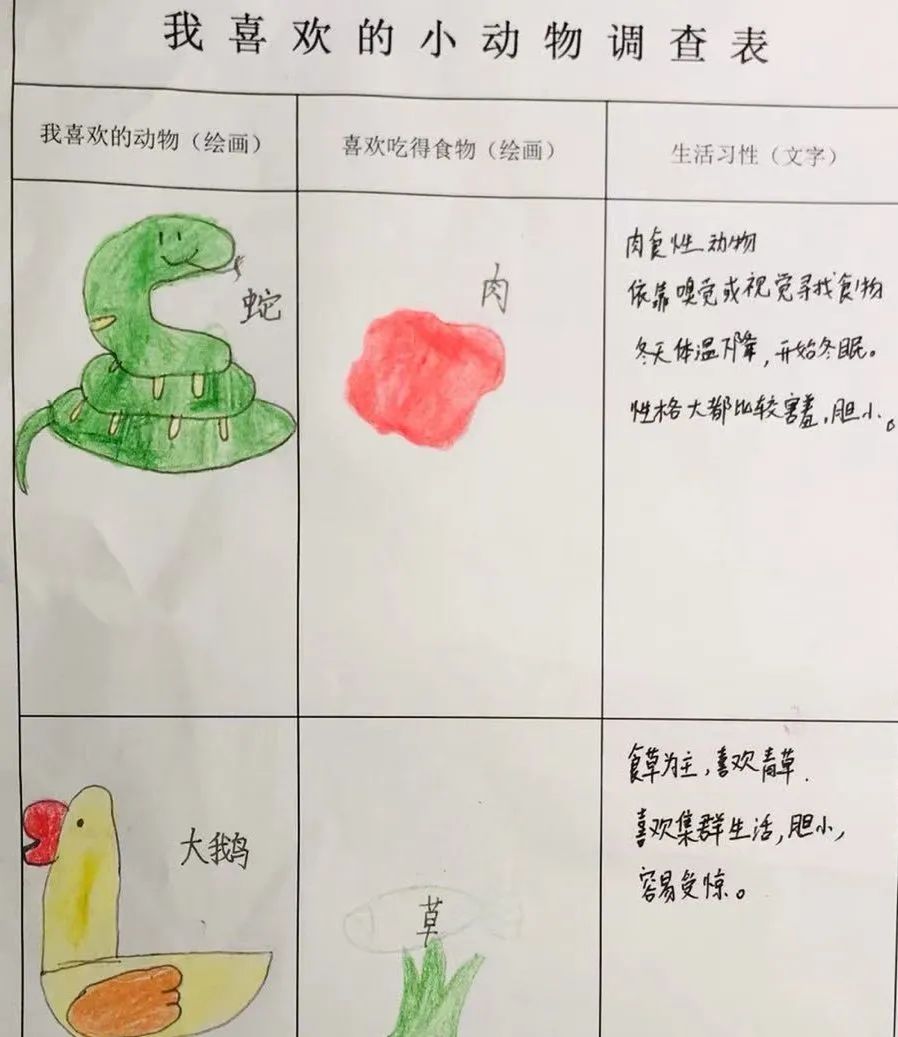 我喜欢的小动物调查表
我喜欢的动物（绘画）
喜欢吃得食物（绘画）
生活习性（文字）
蛇
肉
肉食性动物
依靠嗅觉或视觉寻找食物
冬天体温下降，开始冬眠。
性格大都比较害羞，胆小。
大鹅
草
食草为主，喜欢青草.
喜欢集群生活，胆小，
容易受惊。